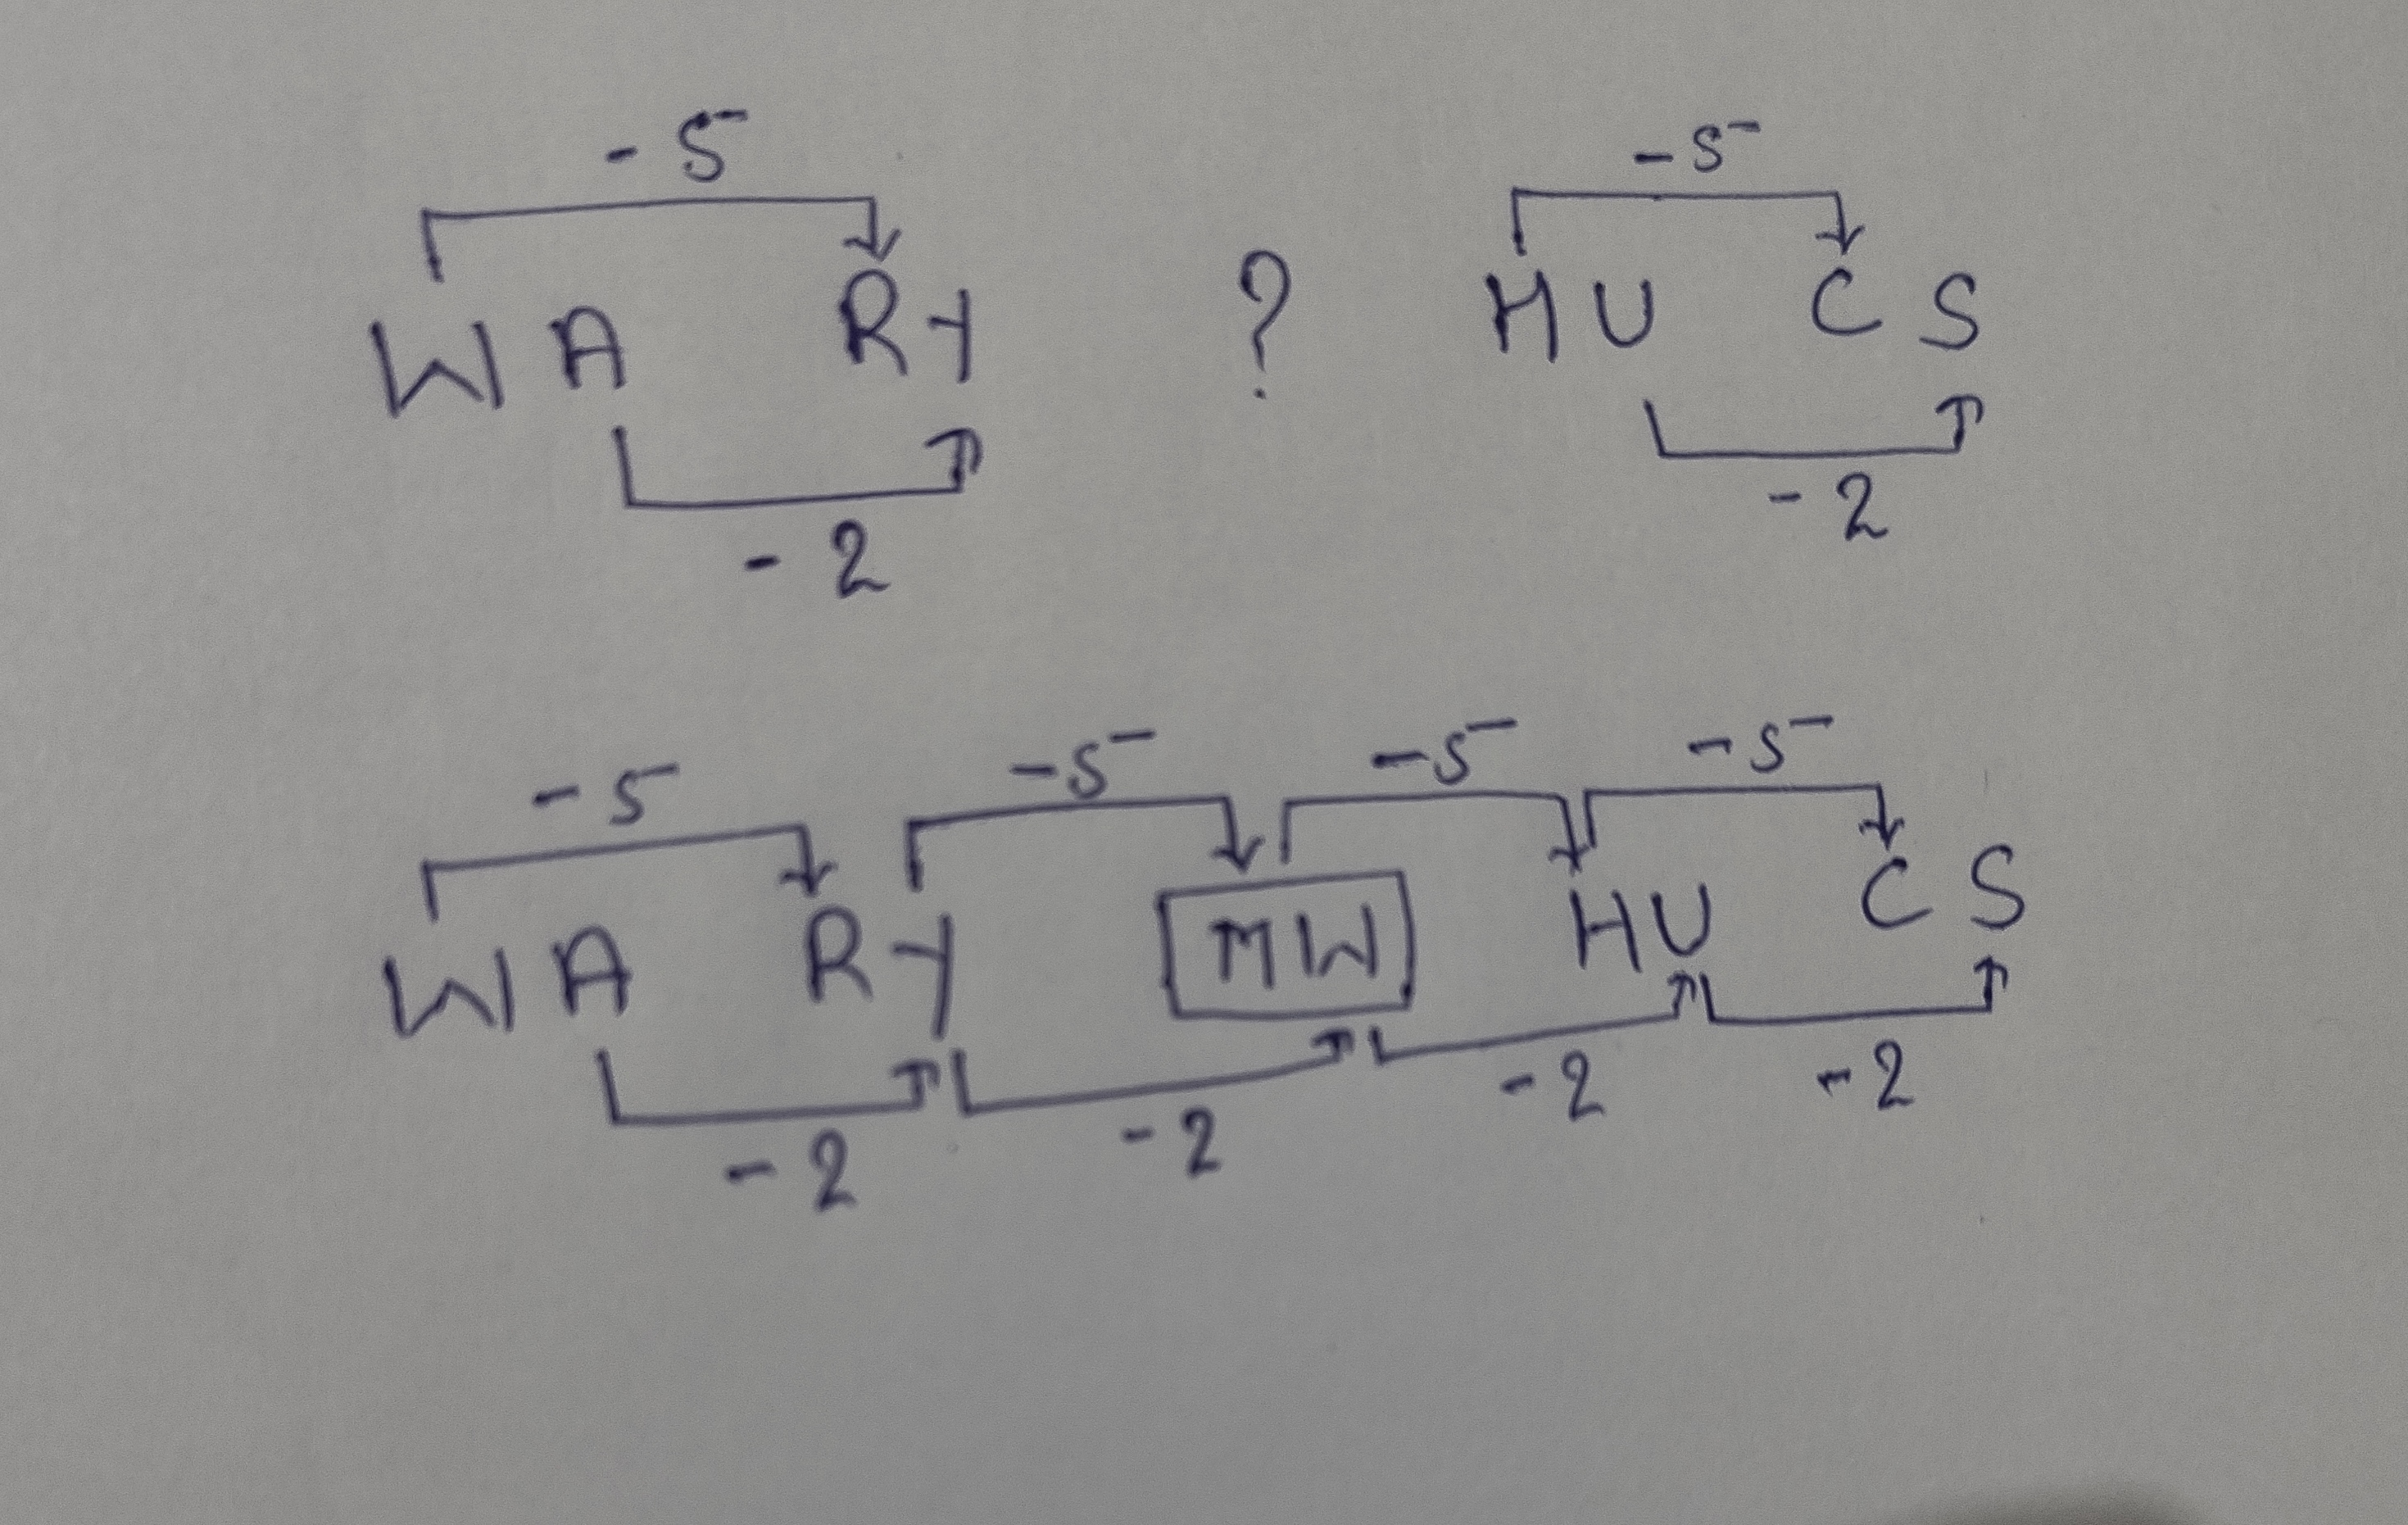 -5 -5
WA RY ? HU CS
-2 -2
-5 -5 -5 -5
WA RY MW HU CS
-2 -2 -2 -2